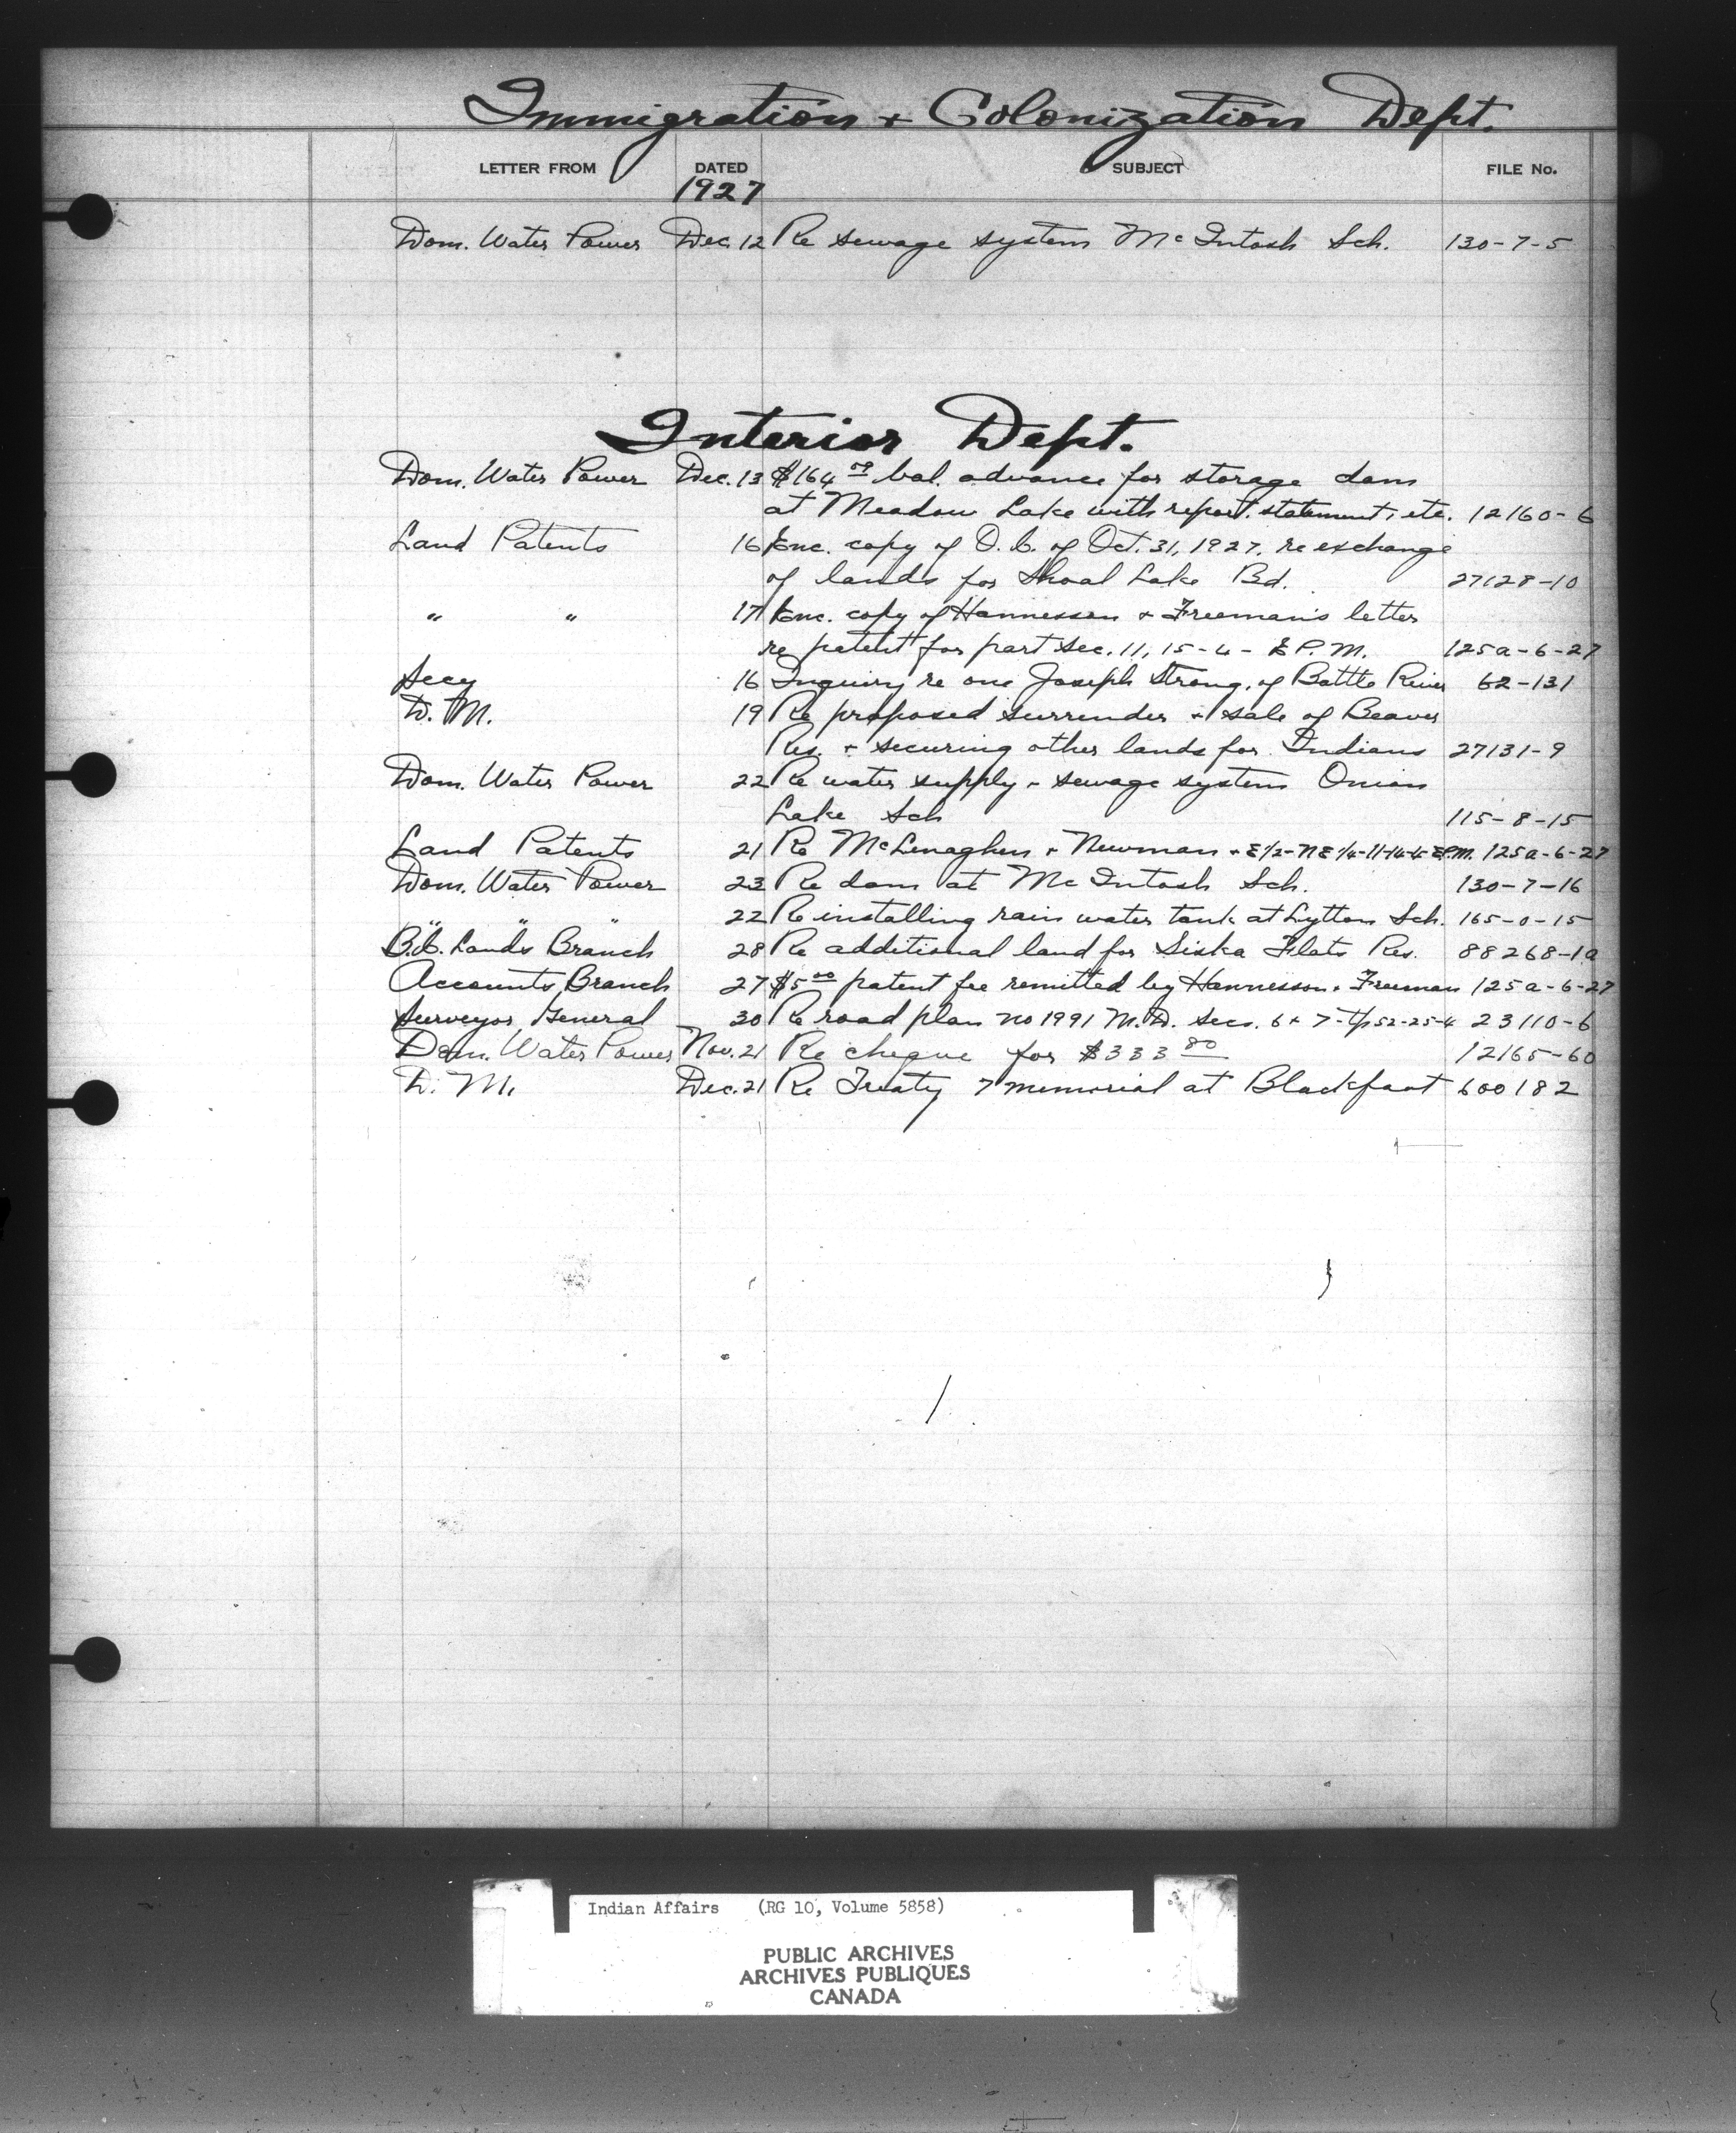 Immigration + Colonization Dept.
LETTER FROM DATED SUBJECT FILE No.
1927
Dom. Water Power Dec. 12 Re sewage system McIntosh Sch. 130-7-5
Interior Dept.
Dom. Water Power Dec. 13 $164 79 bal. advance for storage dam
at Meadow Lake with report, statement, etc. 12160-6
Land Patents 16 Enc. copy of O.C. of Oct. 31, 1927, re exchange
of lands for Shoal Lake Bd. 27128-10
" " 17 Enc. copy of Hannesson + Freeman's letter
re patent for part Sec. 11, 15-4- E P.M. 125a-6-27
Secy 16 Inquiry re one Joseph Strong, of Battle River 62-131
D. M. 19 Re proposed surrender + sale of Beaver
Res. + securing other lands for Indians 27131-9
Dom. Water Power 22 Re water supply + sewage system Onion
Lake Sch 115-8-15
Land Patents 21 Re McLenaghen + Newman + E 1/2-NE 1/4-11-14-4-EPM. 125a-6-27
Dom. Water Power 23 Re dam at McIntosh Sch. 130-7-16
" " " 22 Re installing rain water tank at Lytton Sch. 165-0-15
B.C. Lands Branch 28 Re additional land for Siska Flats Res. 88268-1a
Accounts Branch 27 $5 00 patent fee remitted by Hannesson + Freeman 125a-6-27
Surveyor General 30 Re road plan no 1991 M.D. Secs. 6 + 7-Tp 52-25-4 23110-6
Dom. Water Power Nov. 21 Re cheque for $333 80 12165-60
D. M. Dec. 21 Re Treaty 7 memorial at Blackfoot 600182
Indian Affairs (RG 10, Volume 5858)
PUBLIC ARCHIVES
ARCHIVES PUBLIQUES
CANADA